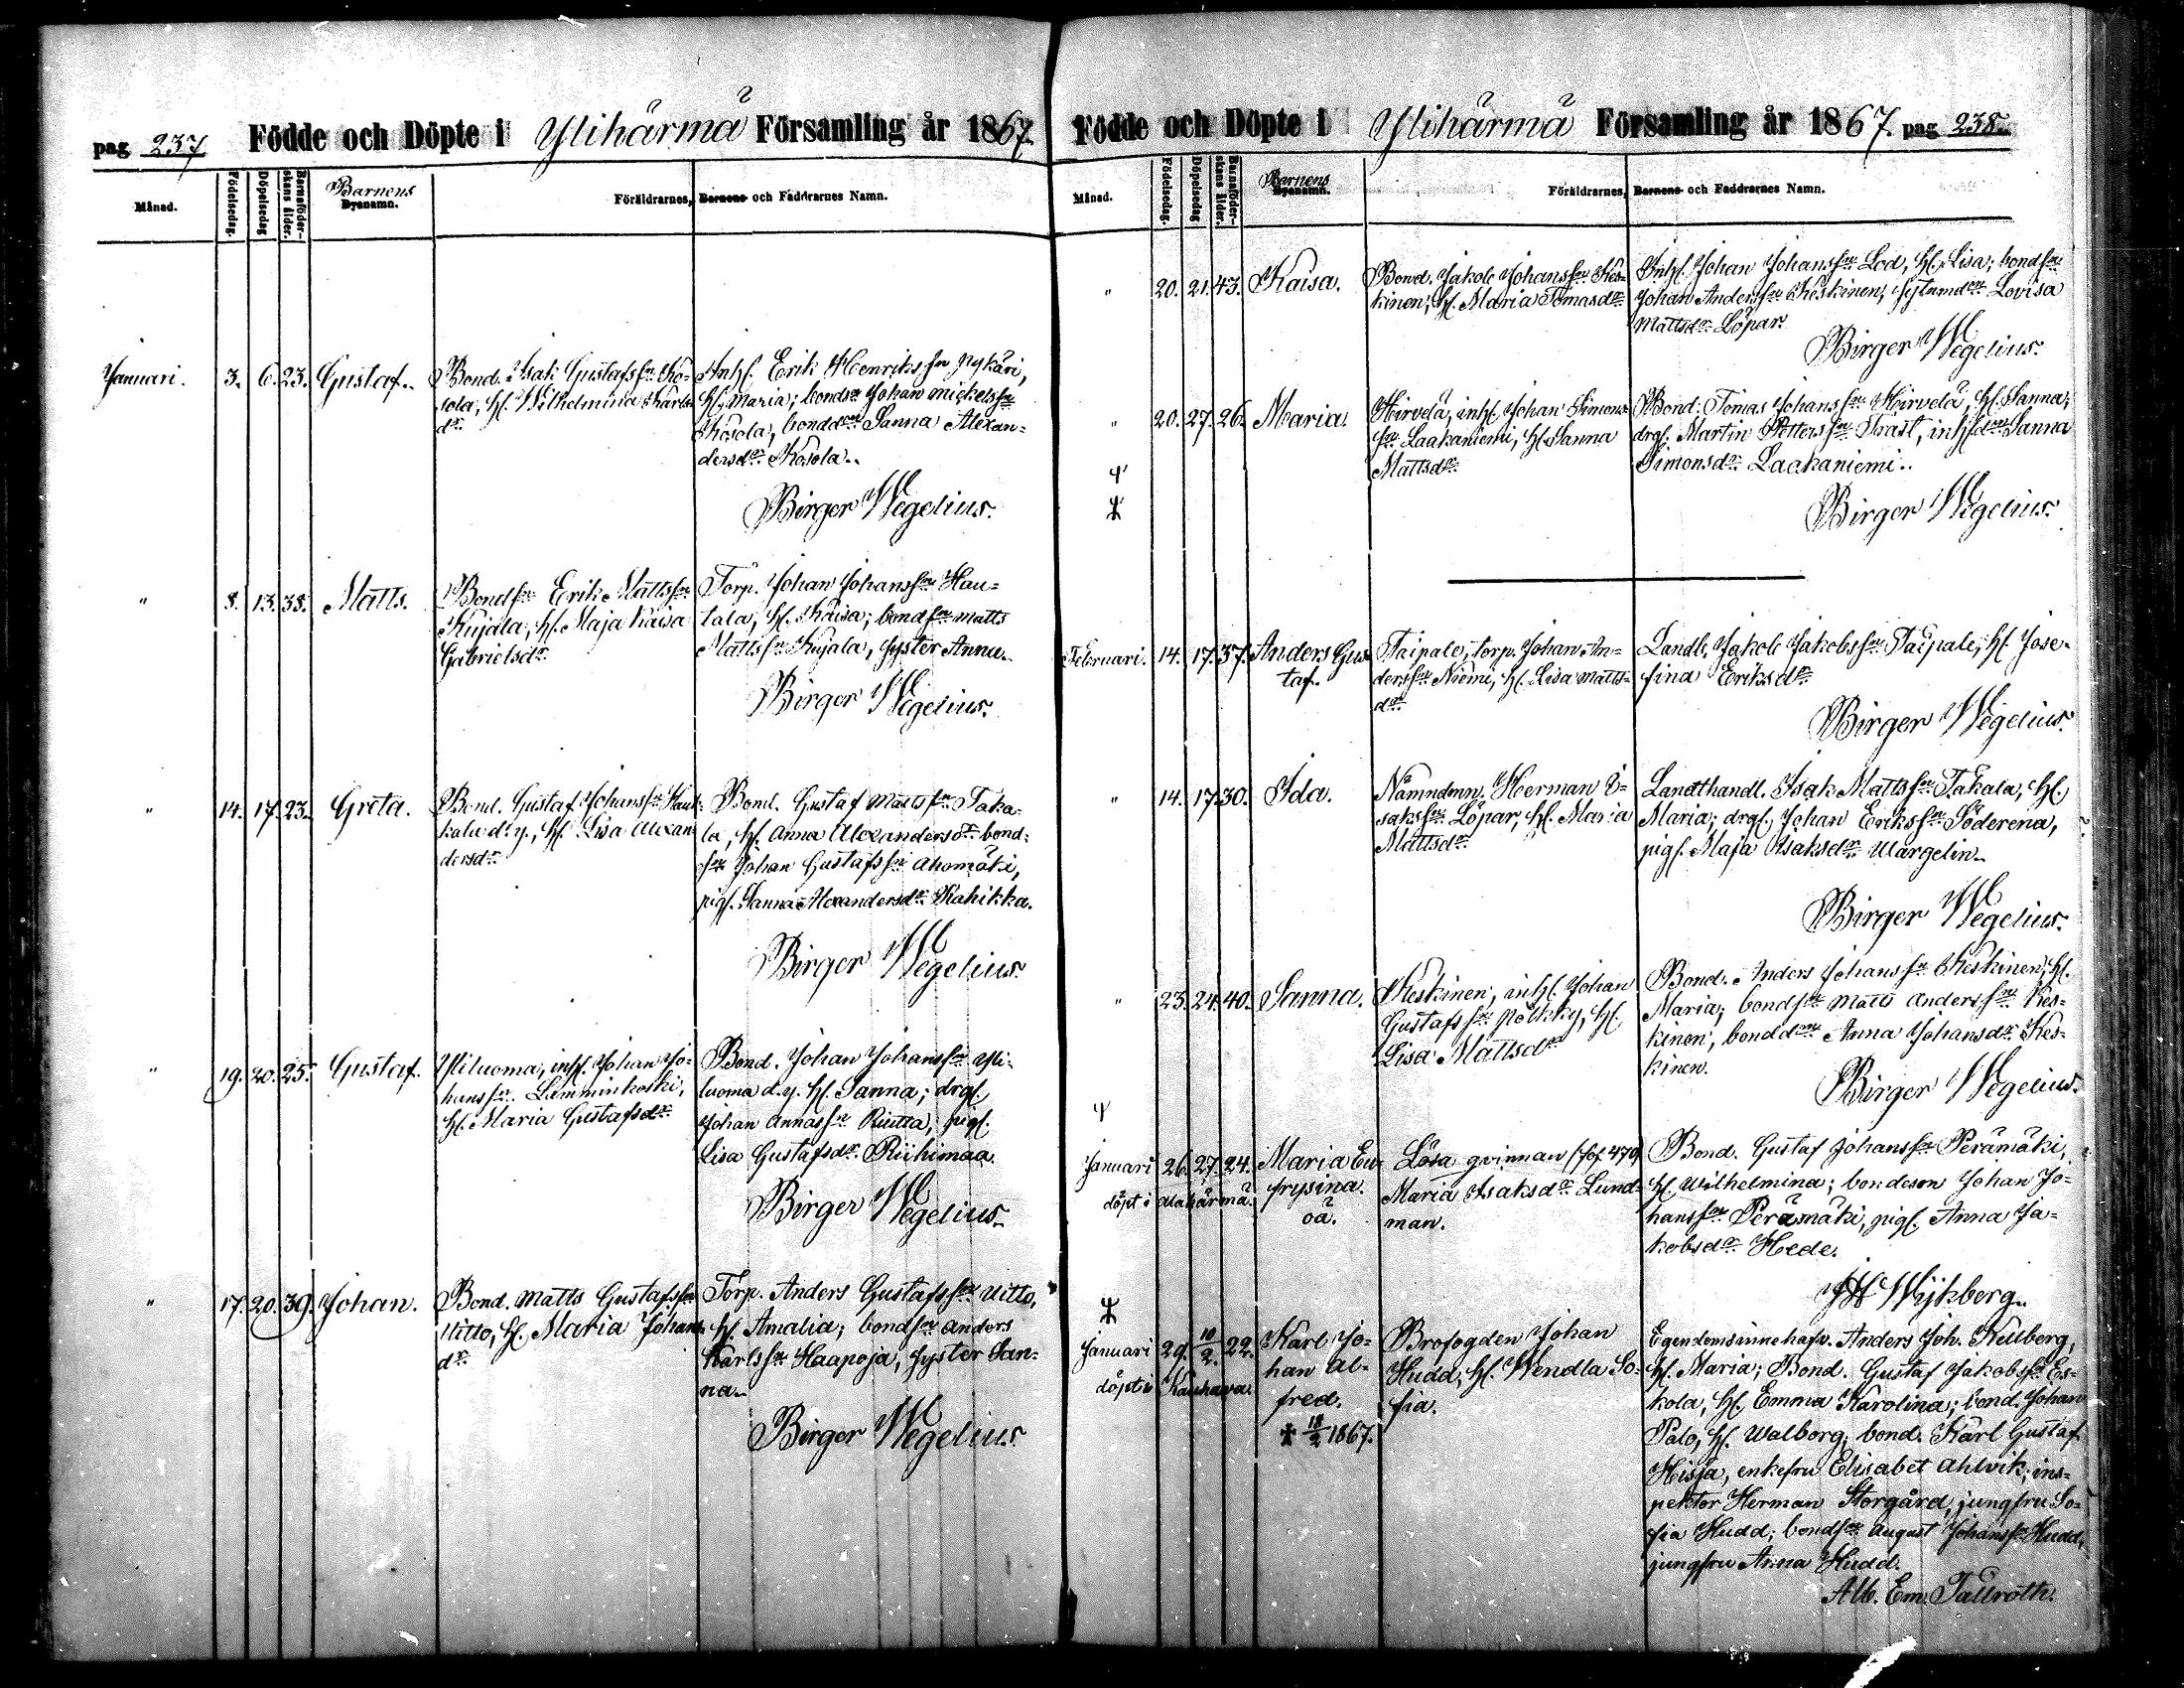 pag 237 Födde och Döpte i Ylihärmä Församling år 1867.
Månad. Födelsedag. Döpelsedag Barnsföder-skans ålder. Barnens Byanamn. Föräldrarnes, Barnens och Faddrarnes Namn.
Januari. 3. 6. 23. Gustaf. Bond. Isak Gustafsson Ko-
sola, h. Wilhelmina Karls-
dr
Inh. Erik Henriksson Pykäri,
h. Maria; bondsn Johan Mickelssn
Kosola, bonddr Sanna Alexan-
dersdr Kosola.
Birger Wegelius.
" 8. 13. 38. Matts. Bondsn Erik Mattssn
Kujala, h. Maja Kaisa
Gabrielsdr
Torp. Johan Johanssn Hau-
tala, h. Kaisa; bondsn Matts
Mattssn Kujala, syster Anna.
Birger Wegelius.
" 14. 17. 23. Greta. Bond. Gustaf Johanssn
d. y., h. Lisa Alexan-
dersdr
Bond. Gustaf Mattssn Taka-
la, h. Anna Alexandersdr bond-
sn Johan Gustafssn Ahomäki,
pig. Sanna Alexandersdr Kahikka.
Birger Wegelius.
" 19. 20. 25. Gustaf. Yliluoma, inh. Johan Jo-
hanssn Lamminkoski,
h. Maria Gustafsdr
Bond. Johan Johanssn Yli-
luoma d.y. h. Sanna; drg.
Johan Annassn Riutta, pig.
Lisa Gustafsdr Riihimaa.
Birger Wegelius.
" 17. 20. 39. Johan. Bond. Matts Gustafssn
Uitto, h. Maria Johans-
dr
Torp. Anders Gustafssn Uitto,
h. Amalia; bondsn Anders
Karlssn Haapoja, syster San-
na.
Birger Wegelius.
Födde och Döpte i Ylihärmä Församling år 1867. pag 238.
Månad. Födelsedag. Döpelsedag Barnsföder-skans ålder. Barnens Byanamn. Föräldrarnes, Barnens och Faddrarnes Namn.
" 20. 21. 43. Kaisa. Bond. Jakob Johanssn Kes-
kinen, h. Maria Tomasdr
Inh. Johan Johanssn Lod, h. Lisa; bondsn
Johan Anderssn Keskinen, Lovisa
Mattsdr Löpar.
Birger Wegelius.
" 20. 27. 26. Maria. Hirvelä, inh. Johan Simons-
sn Laakaniemi, h. Sanna
Mattsdr
Bond. Tomas Johanssn Hirvelä, h. Sanna;
drg. Martin Petterssn Trast, inh.dr Sanna
Simonsdr Laakaniemi.
Birger Wegelius.
Februari. 14. 17. 37. Anders Gus-
taf.
Taipale, torp. Johan An-
derssn Niemi, h. Lisa Matts-
dr
Landb. Jakob Jakobssn Taipale, h. Jose-
fina Eriksdr
Birger Wegelius.
" 14. 17. 30. Ida. Nämndemn. Herman I-
sakssn Löpar, h. Maria
Mattsdr
Landthandl. Isak Mattssn Takala, h.
Maria; drg. Johan Erikssn Söderena,
pig. Maja Isaksdr Wargelin.
Birger Wegelius.
" 23. 24. 40. Sanna. Keskinen, inh. Johan
Gustafssn Pölkky, h.
Lisa Mattsdr
Bond. Anders Johanssn Keskinen, h.
Maria; bondsn Matts Anderssn Kes-
kinen, bonddr Anna Johansdr Kes-
kinen.
Birger Wegelius.
Januari 26. 27. 24. Maria Eu-
frysina.
oä.
döpt i Alahärmä.
Lösa qvinnan (fol. 470)
Maria Isaksdr Lund-
man.
Bond. Gustaf Johanssn Perämäki,
h. Wilhelmina; bondeson Johan Jo-
hanssn Perämäki, pig. Anna Ja-
kobsdr Hede.
Wijkberg.
Januari 29. 10/2. 22. Karl Jo-
han Al-
fred.
18/2 1867.
döpt i Kauhava
Brofogden Johan
Hudd, h. Wendla So-
fia.
Egendomsinnehafv. Anders Joh. Killberg,
h. Maria; Bond. Gustaf Jakobssn Es-
kola, h. Emma Karolina; bond. Johan
Palo, h. Walborg; bond. Karl Gustaf
Hissa, enkefru Elisabet Ahlvik; ins-
pektor Herman Storgård, jungfru So-
fia Hudd; bondsn August Johanssn Hudd,
jungfru Anna Hudd.
Alb. Em. Tallroth.